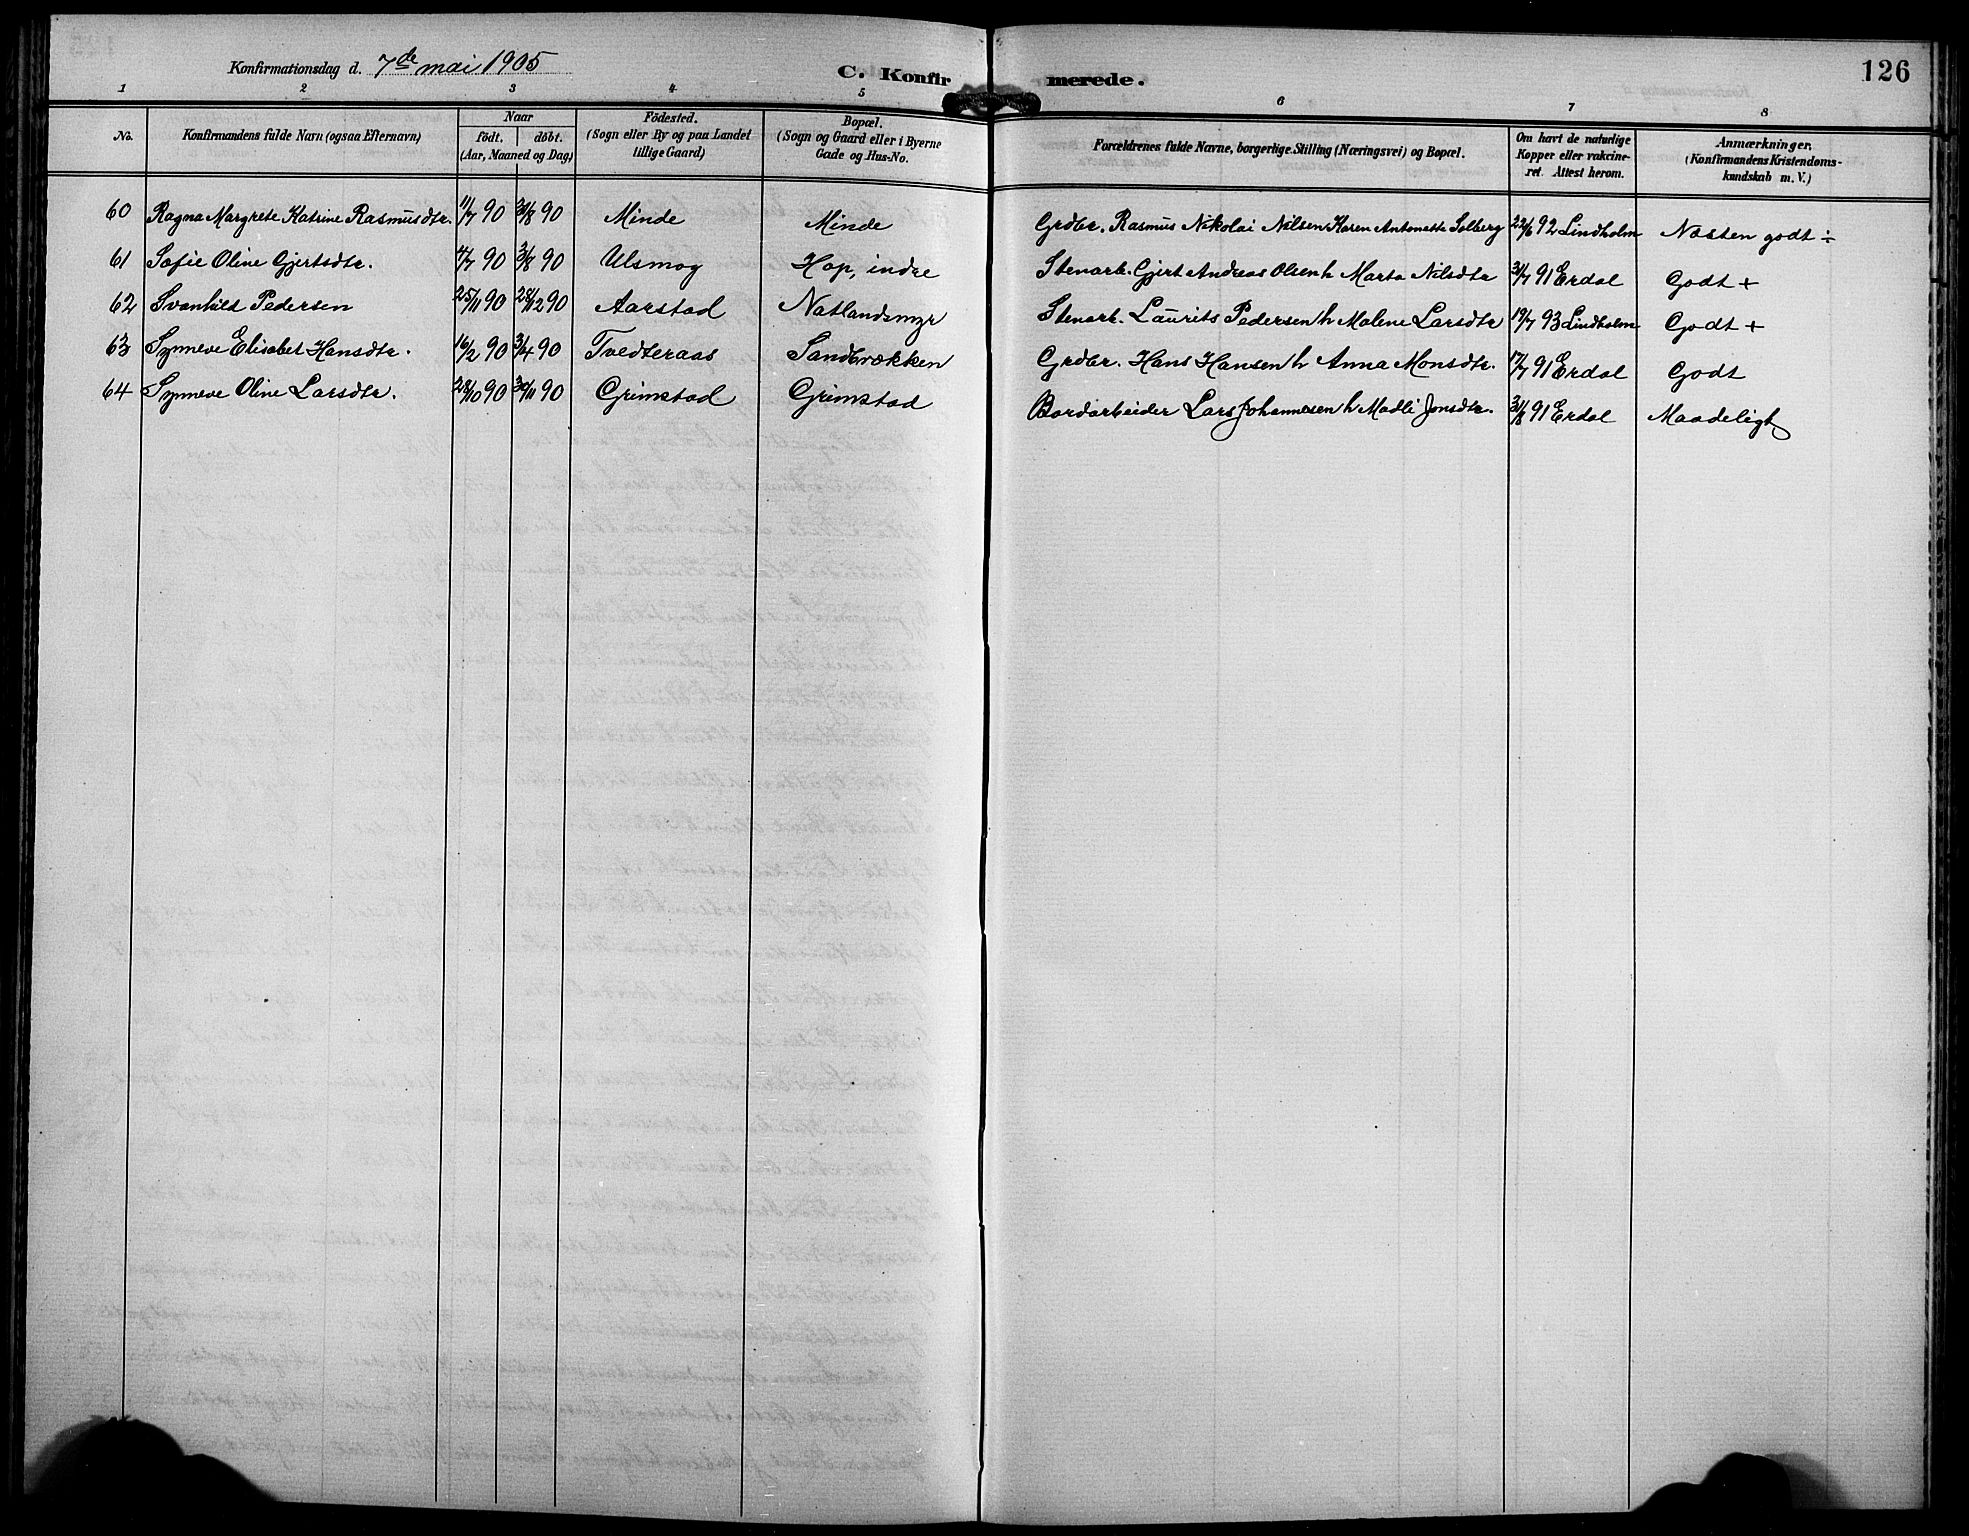 Konfirmationsdag d. 7de mai 1905
C. Konfirmerede.
126
1 2 3 4 5 6 7 8
No.
Konfirmandens fulde Navn (ogsaa Efternavn)
Naar
födt. döbt.
(Aar, Maaned og Dag)
Födested.
(Sogn eller By og paa Landet
tillige Gaard)
Bopæl.
(Sogn og Gaard eller i Byerne
Gade og Hus-No.
Forældrenes fulde Navne, borgerlige Stilling (Næringsvei) og Bopæl.
Om havt de naturlige
Kopper eller vakcine-
ret. Attest herom.
Anmærkninger,
(Konfirmandens Kristendoms-
kundskab m. V.)
60 Ragna Margrete Katrine Rasmusdtr. 11/7 90 31/8 90 Minde Minde Grdbr. Rasmus Nikolai Nilsen Karen Antonette Solberg 22/6 92 Lindholm Næsten godt ÷
61 Sofie Oline Gjertsdtr. 4/7 90 3/8 90 Ulsmog Hop, indre Stenarb. Gjert Andreas Olsen h Marta Nilsdtr 3/7 91 Erdal Godt +
62 Svanhild Pedersen 25/11 90 28/12 90 Aarstad Natlandsmyr Stenarb. Laurits Pedersen h Malene Larsdtr 19/7 93 Lindholm Godt +
63 Synneve Elisabet Hansdtr. 16/2 90 3/4 90 Tvedteraas Sandbrækken Grdbr. Hans Hansen h Anna Monsdtr. 17/7 91 Erdal Godt
64 Synneve Oline Larsdtr. 28/10 90 30/11 90 Grimstad Grimstad Bordarbeider Lars Johannesen h Madli Jonsdtr. 31/8 91 Erdal Maadeligt